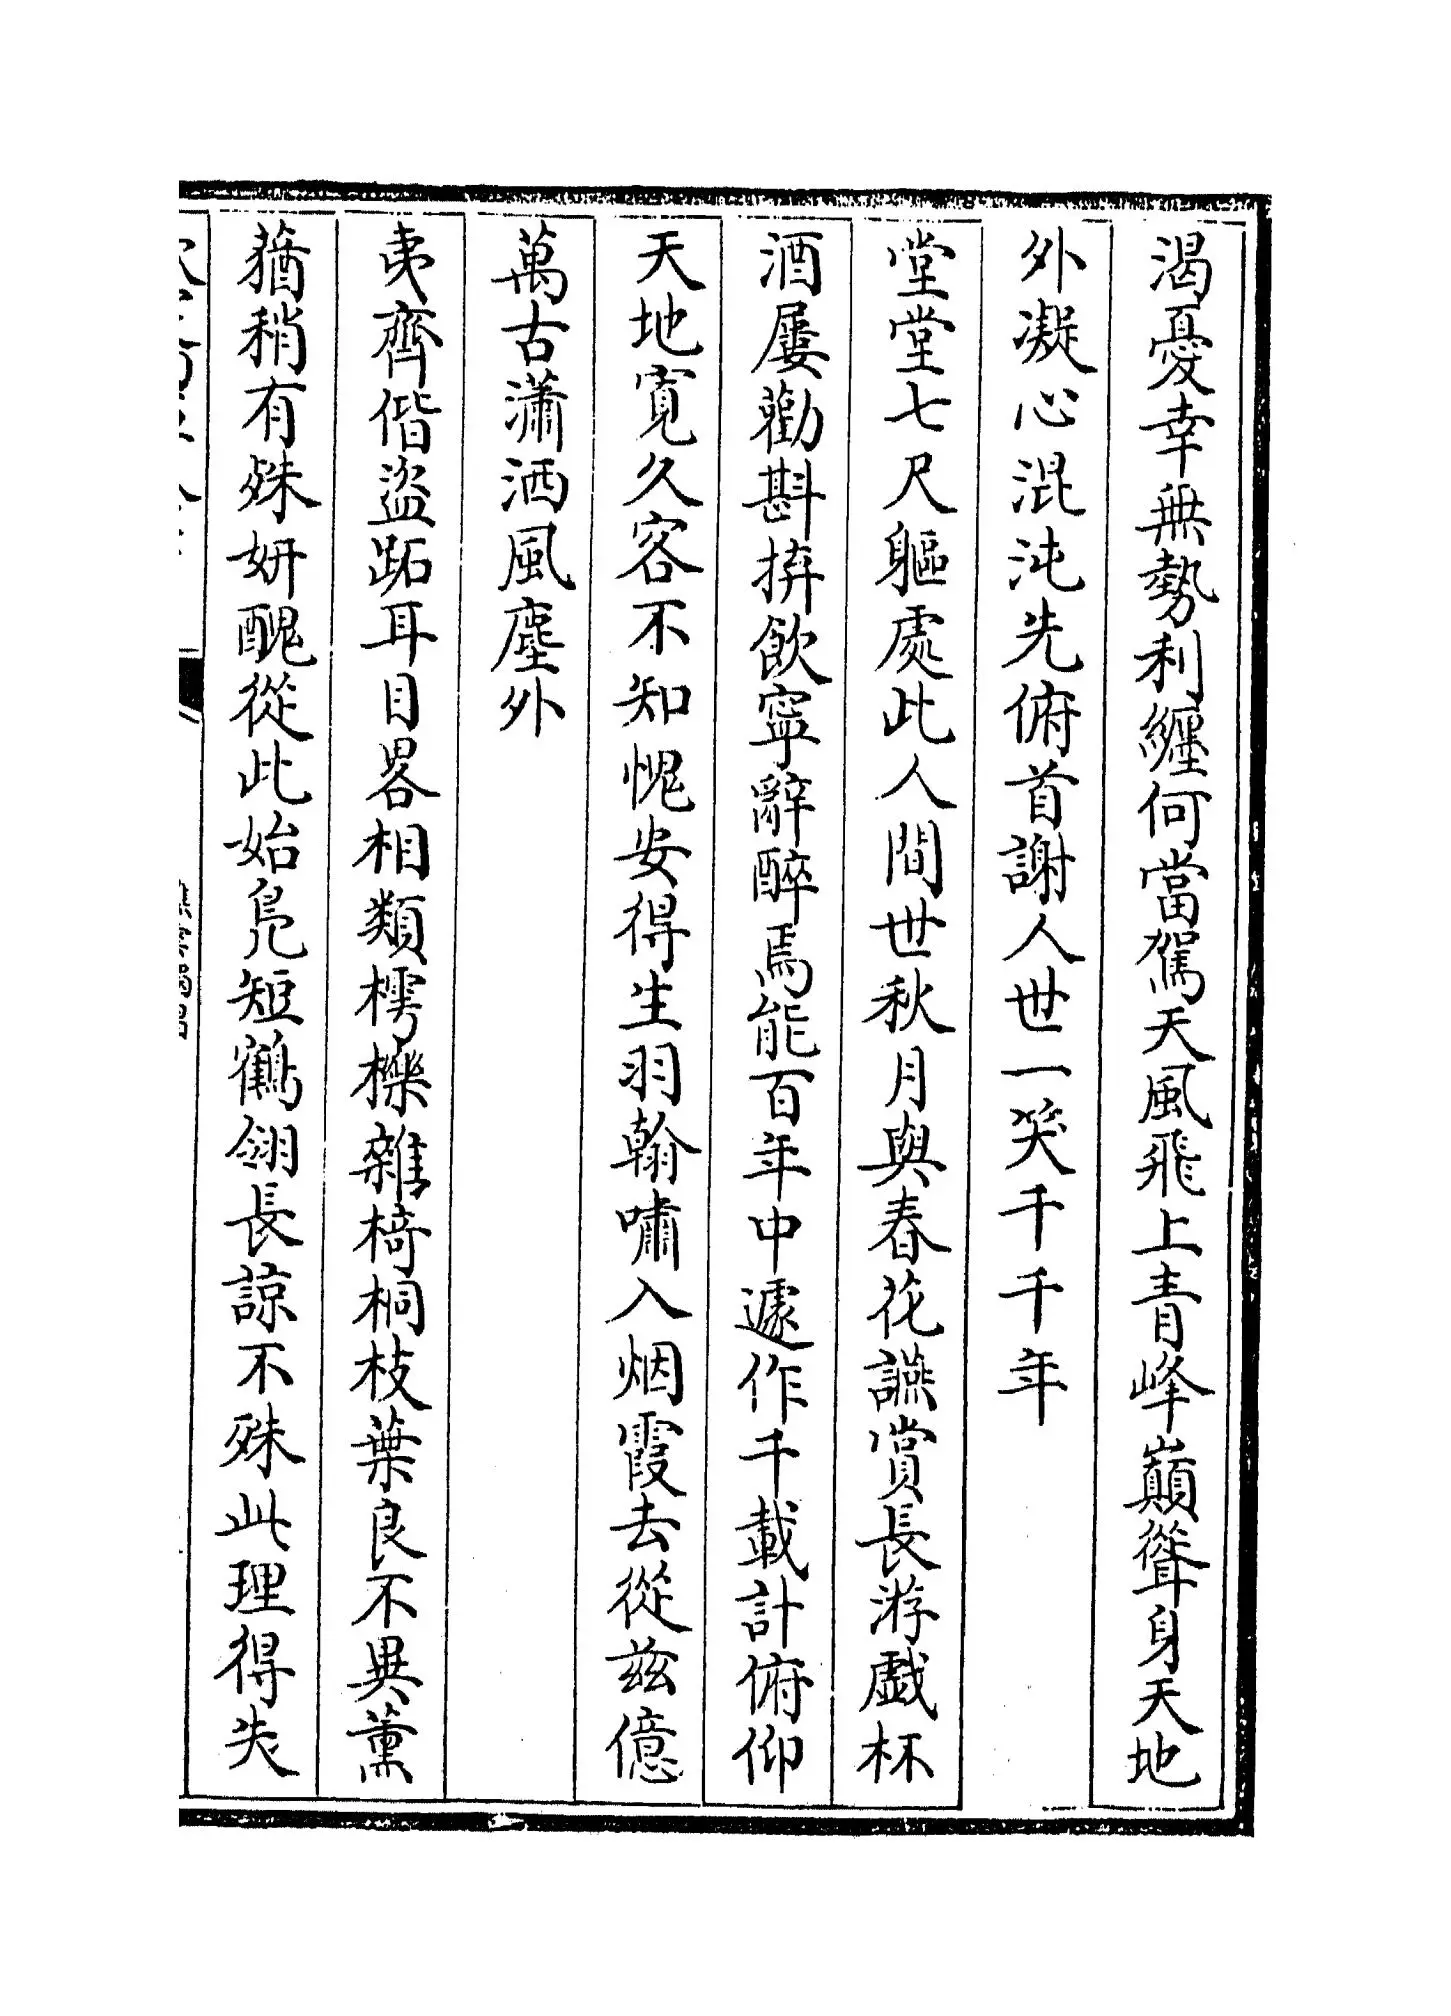 渴憂幸無勢利纏何當駕天風飛上青峰巔聳身天地
外凝心混沌先俯首謝人世一笑千千年
堂堂七尺軀處此人間世秋月與春花讌賞長游戲杯
酒屢勸斟拚飲寧辭醉焉能百年中遽作千載計俯仰
天地寬久客不知愧安得生羽翰嘯入烟霞去從兹億
萬古瀟洒風塵外
夷齊偕盜跖耳目畧相類樗櫟雜椅桐枝葉良不異薰
蕕稍有殊妍醜從此始鳧短鶴翎長諒不殊此理得失